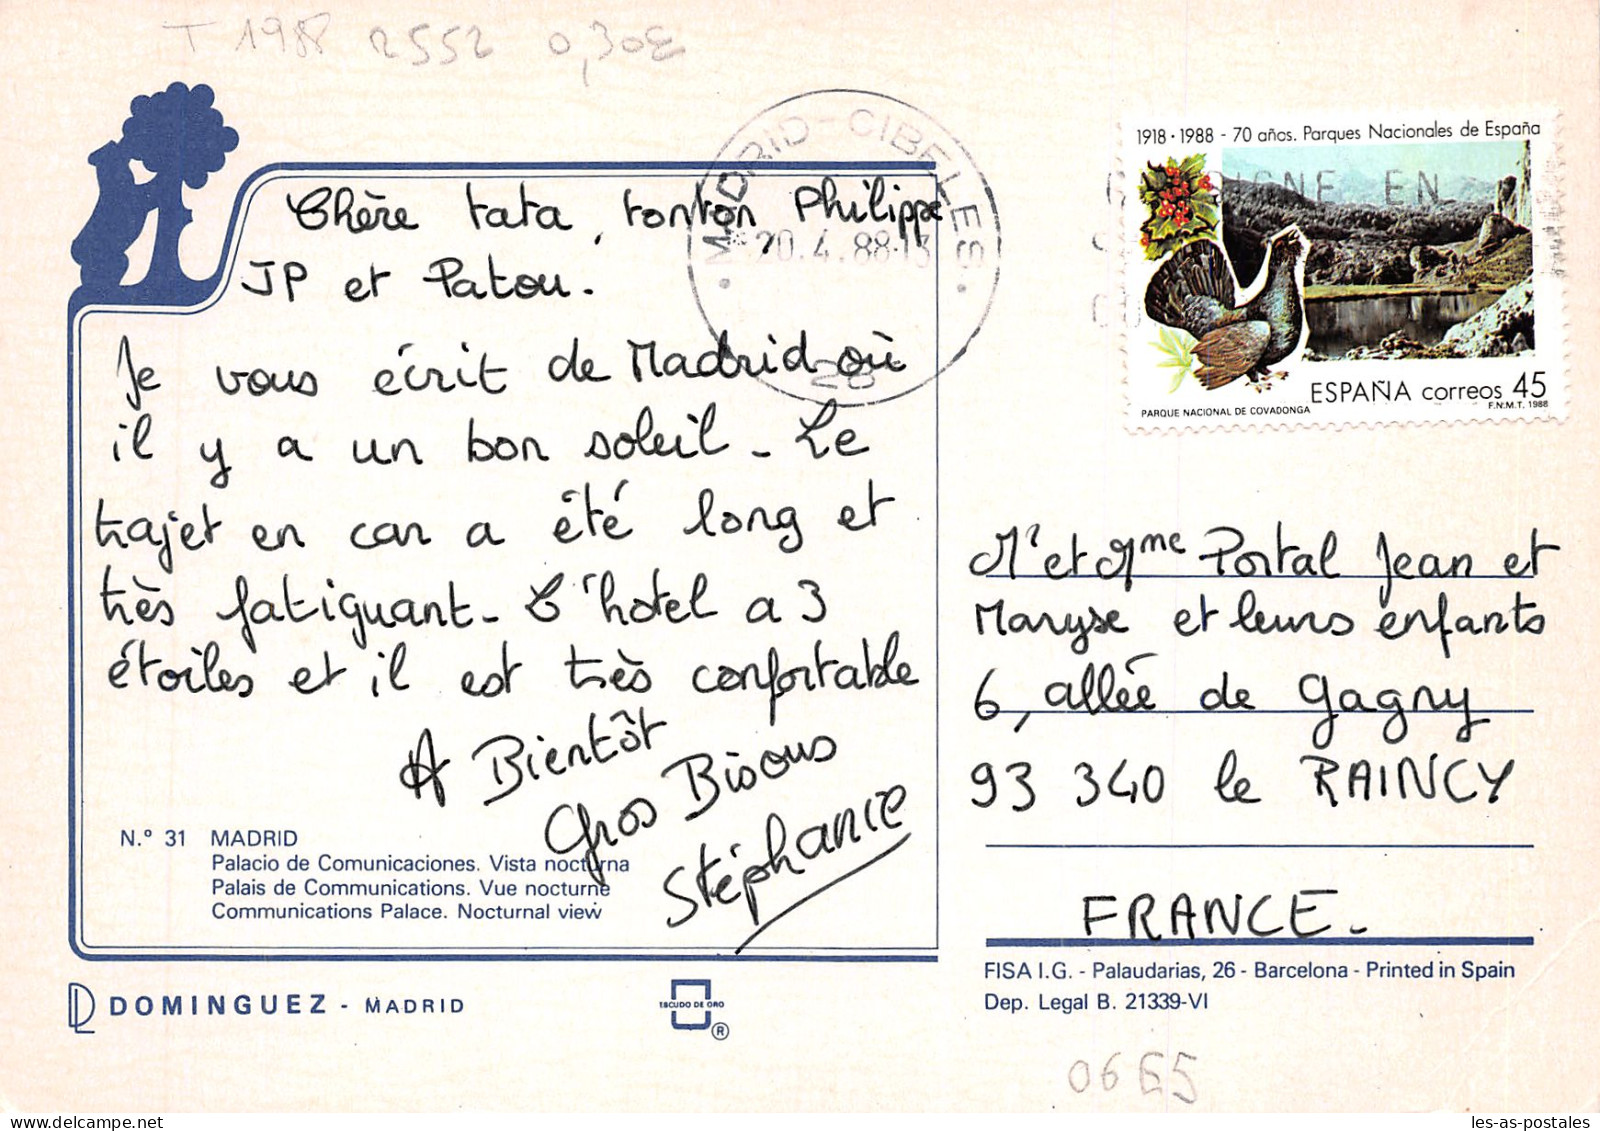 T 1988 2552 0,30€
MADRID-CIBELES
20.4.88-13
28
1918 · 1988 - 70 años. Parques Nacionales de España
EN
PARQUE NACIONAL DE COVADONGA
ESPAÑA correos 45
F.N.M.T. 1988
Chère tata, tonton Philippe
JP et Patou.
Je vous écrit de Madrid où
il y a un bon soleil - Le
trajet en car a été long et
très fatiguant - L'hotel a 3
étoiles et il est très confortable
A Bientôt
Gros Bisous
Stéphanie
N.º 31 MADRID
Palacio de Comunicaciones. Vista nocturna
Palais de Communications. Vue nocturne
Communications Palace. Nocturnal view
DL DOMINGUEZ - MADRID
ESCUDO DE ORO
®
Mr et Mme Portal Jean et
Maryse et leurs enfants
6, allée de Gagny
93 340 le RAINCY
FRANCE -
FISA I.G. - Palaudarias, 26 - Barcelona - Printed in Spain
Dep. Legal B. 21339-VI
les-as-postales